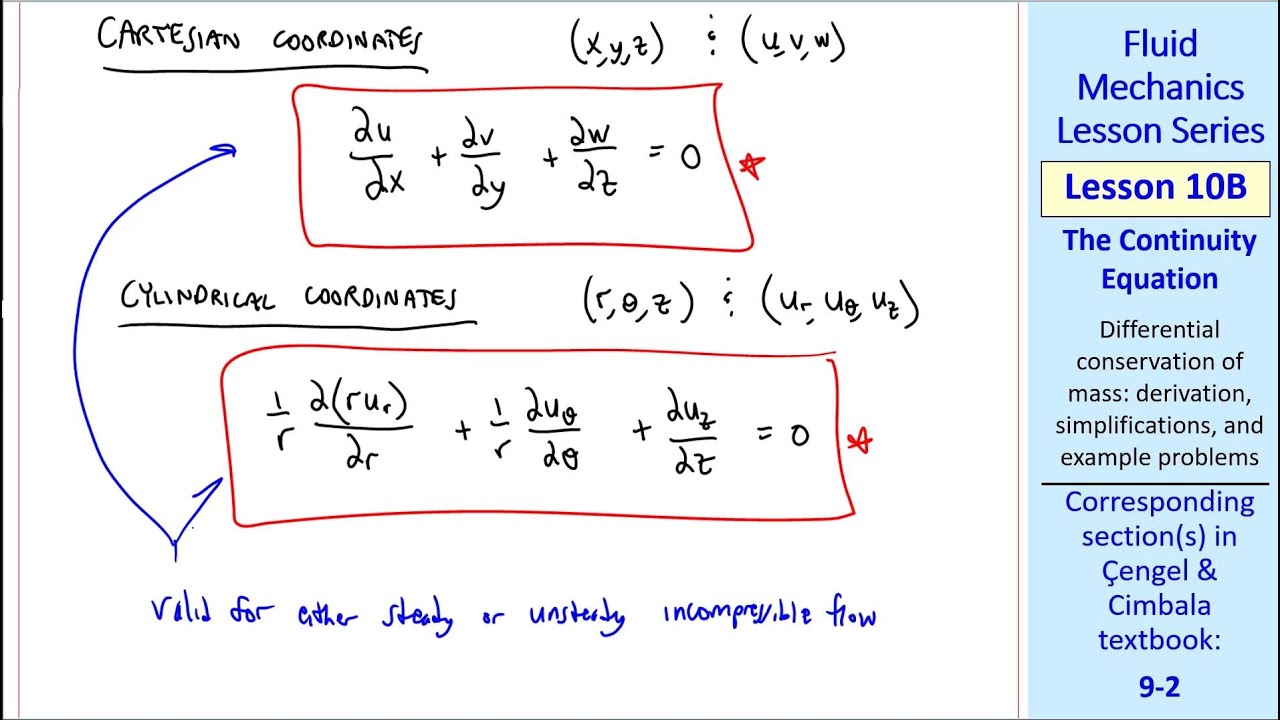 CARTESIAN COORDINATES (x,y,z) & (u,v,w)
∂u/∂x + ∂v/∂y + ∂w/∂z = 0 ☆
CYLINDRICAL COORDINATES (r,θ,z) & (u_r, u_θ, u_z)
1/r ∂(r u_r)/∂r + 1/r ∂u_θ/∂θ + ∂u_z/∂z = 0 ☆
Valid for either steady or unsteady incompressible flow
Fluid
Mechanics
Lesson Series
Lesson 10B
The Continuity
Equation
Differential
conservation of
mass: derivation,
simplifications, and
example problems
Corresponding
section(s) in
Çengel &
Cimbala
textbook:
9-2